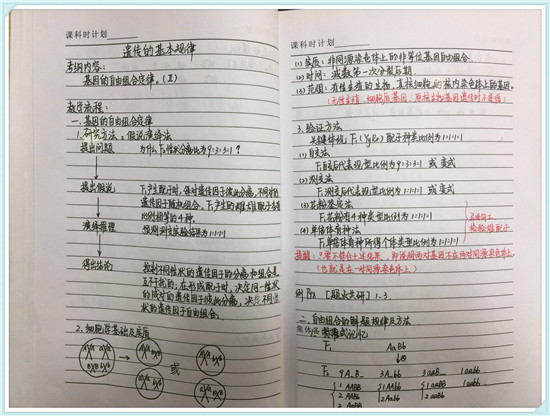 课科时计划
遗传的基本规律
考纲内容:
基因的自由组合定律。(Ⅱ)
教学流程:
一. 基因的自由组合定律
1. 研究方法: 假说演绎法
提出问题 为什么F₂性状分离比为9:3:3:1?
提出假说 F₁产生配子时,每对遗传因子彼此分离,不同对的
遗传因子自由组合。F₁产生的雌雄配子各有
比例相等的4种。
演绎推理 预测测交实验结果为1:1:1:1
得出结论 控制不同性状的遗传因子的分离和组合是
互不干扰的;在形成配子时,决定同一性状
的成对的遗传因子彼此分离,决定不同性
状的遗传因子自由组合。
2. 细胞学基础及实质
或
课科时计划
(1) 实质: 非同源染色体上的非等位基因自由组合.
(2) 时间: 减数第一次分裂后期.
(3) 范围: 有性生殖的生物,真核细胞的核内染色体上的基因。
(无性生殖,细胞质基因,原核生物基因遗传时不遵循)
3. 验证方法
关键体现 F₁(YyRr) 配子种类比例为1:1:1:1
(1) 自交法
F₁自交后代表现型比例为9:3:3:1 或 变式
(2) 测交法
F₁测交后代表现型比例为1:1:1:1 或 变式
(3) 花粉鉴定法
F₁花粉有4种类型比例为1:1:1:1
(4) 单倍体育种法
F₁单倍体育种所得个体类型比例为1:1:1:1
检验雄配子
提醒: 只要不符合上述结果,即说明两对基因不在两对同源染色体上。
(也就是在一对同源染色体上)
例 P72 【题点共研】 1-3.
二. 自由组合的解题规律及方法
记忆
F₁ AaBb
↓⊗
F₂ 9A_B_ 3A_bb 3aaB_ 1aabb
1AABB 1AAbb 1aaBB 1aabb
2AABb 2Aabb 2aaBb